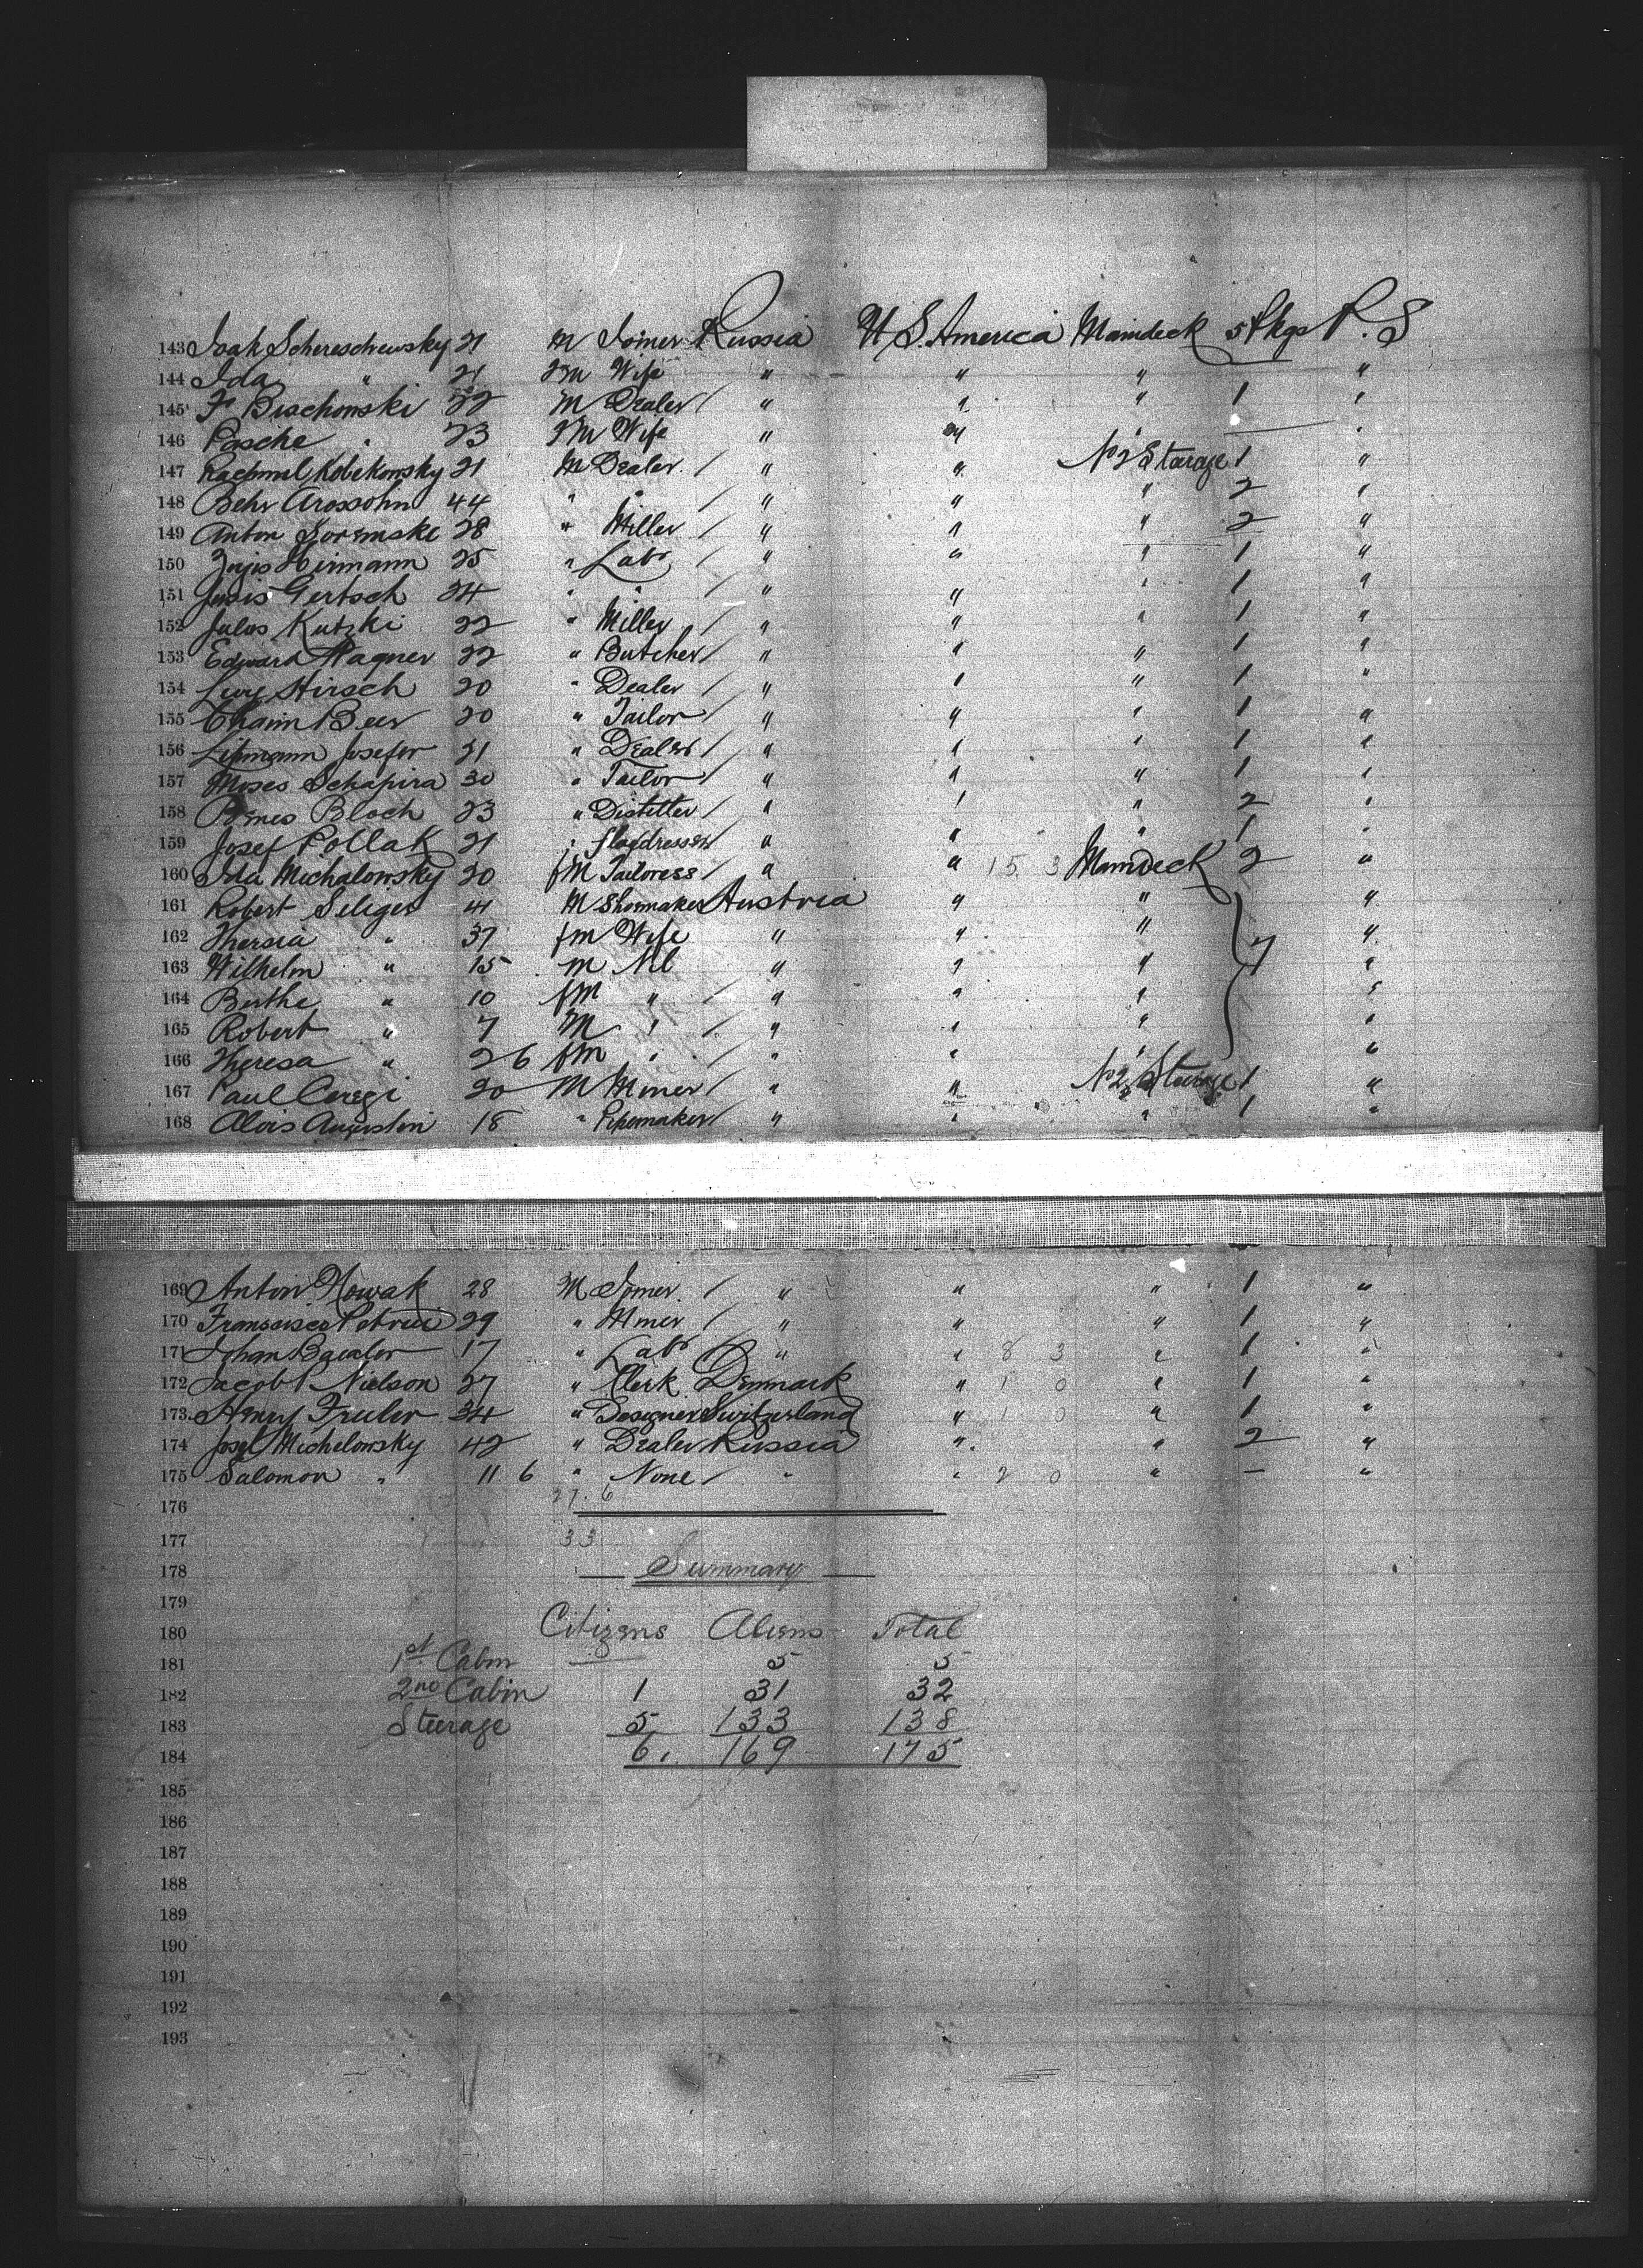 143 Isak Schereschewsky 21 M Joiner Russia U. S. America Maindeck 5 Pkgs P. S
144 Ida " 21 fm Wife " " " "
145 F Bischowski 22 M Dealer / " " " 1 "
146 Pasche " 23 fM Wife " " " — "
147 Kobekowsky 21 M Dealer / " " No 2 Steerage 1 "
148 Behr Arossohn 44 " " / " " " 2 "
149 Anton 28 " Miller / " " " 2 "
150 Hirmann 25 " Labr / " " " 1 "
151 Gertsch 24 " " / " " " 1 "
152 Julos Kutzki 22 " Miller / " " " 1 "
153 Edward Wagner 22 " Butcher / " " " 1 "
154 Levy Hirsch 20 " Dealer / " " " 1 "
155 Chaim Beer 20 " Tailor / " " " 1 "
156 Lipmann Josefer 21 " Dealer / " " " 1 "
157 Moses Schapira 30 " Tailor / " " " 1 "
158 Bloch 23 " Distetler / " " " 2 "
159 Josef Pollak 21 " flaxdresser / " " " 1 "
160 Ida Michalowsky 20 fM Tailoress / " " 15 3 Maindeck 2 "
161 Robert Seliger 41 M Shoemaker Austria " " "
162 Thersia " 37 fm Wife " " " "
163 Wilhelm " 15 m Nil " " " 7 "
164 Berthe " 10 fM " / " " " "
165 Robert " 7 M " / " " " "
166 Theresa " 2 6 fm " / " " " "
167 Paul Ceregi 20 M Miner / " " No 2 Steerage 1 "
168 Alois Augustin 18 " Pipemaker / " " " 1 "
169 Anton Nowak 28 M Joiner / " " " 1 "
170 Francisco Petrun 29 " Miner / " " " 1 "
171 Johan 17 " Labr / " " 8 3 " 1 "
172 Jacob P. Nielson 27 " Clerk Denmark " 1 0 " 1 "
173 Henry Fruler 34 " Designer Switzerland " 1 0 " 1 "
174 Josef Michelowsky 42 " Dealer Russia " " 2 "
175 Salomon " 11 6 " None / " " 2 0 " — "
176 27. 6
177 33
178 Summary
179
180 Citizens Aliens Total
181 1st Cabin — 5 5
182 2nd Cabin 1 31 32
183 Steerage 5 133 138
184 6 169 175
185
186
187
188
189
190
191
192
193